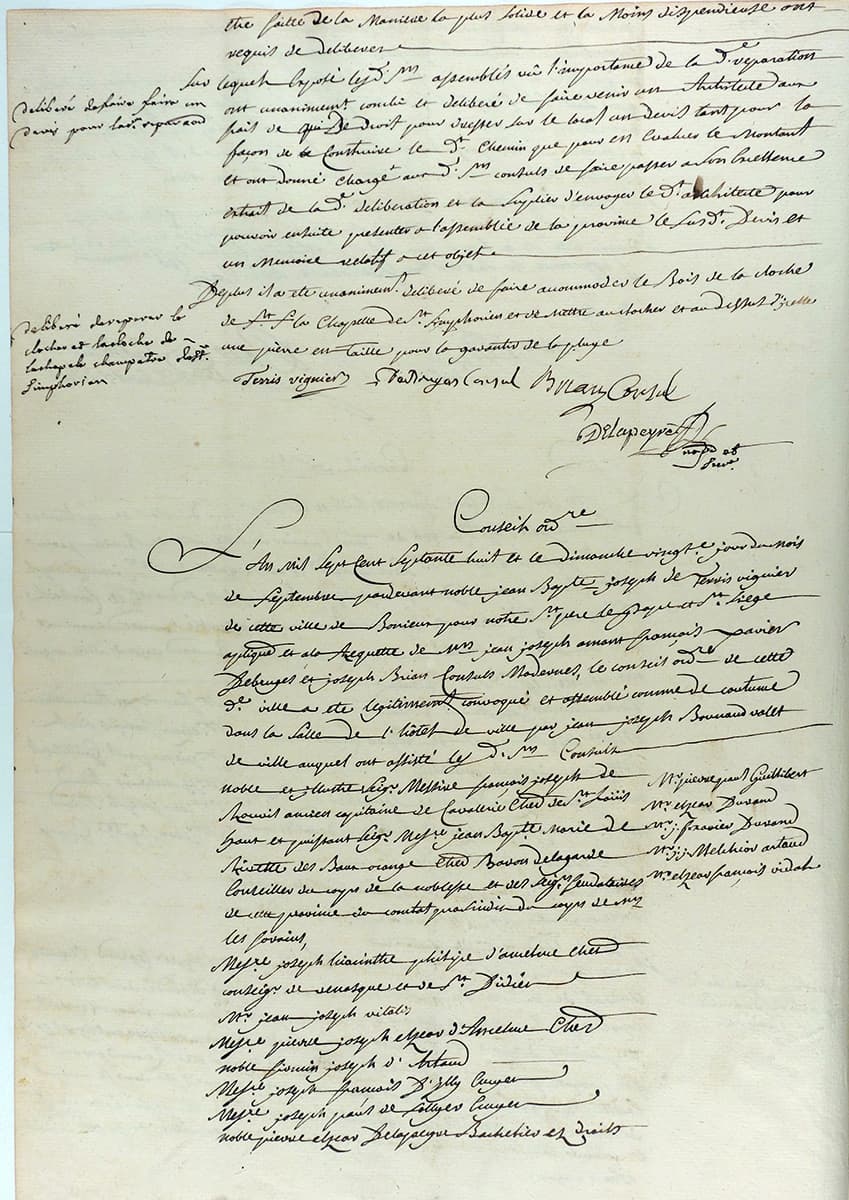 être faitte de la Maniere la plus solide et la Moins dispendieuse ont
requis de deliberer
deliberé de faire faire un
devis pour lad.e reparaõn
Sur lequel Exposé lesd. srs assemblés vû l'importance de la d.e reparation
ont unanimemt conclu et deliberé de faire venir un Architecte aux
frais de qui De Droit pour dresser sur le local un Devis tant pour la
façon de Construire le dt. Chemin que pour en Evaluer le Montant
et ont donné Chargé aux d. srs consuls de faire passer a son Excellence
extrait de la d.e deliberation et la suplier d'envoyer le dt. architecte pour
pouvoir ensuite presenter a l'assemblée de la province le susdt. Devis et
un Memoire relatif a cet objet.
deliberé de reparer le
clocher et la cloche de
la chapele champetre de St.
Simphorien
De plus il a eté unanimemt. deliberé de faire accommoder le Bois de la cloche
de la Chapelle de St. Simphorien et de mettre au clocher et au dessus d'icelle
une pierre en taille pour la garantir de la pluye
Terris viguier Consul Brian Consul
Delapeyre
Conseil ordre
L'An mil sept cent septante huit et le dimanche vingt.e jour du mois
de Septembre pardevant noble jean Bapte joseph de Terris viguier
de cette ville de Bonieux pour notre St. pere le Pape et St. Siege
apliqué et a la Requette de Mrs jean joseph amant françois xavier
et joseph Brian Consuls Modernes, le conseil ordre de cette
d.e ville a eté legitimemt. convoqué et assemblé comme de coutume
dans la Salle de l'hôtel de ville par jean joseph Bonnaud valet
de ville auquel ont assisté les d. srs Consuls
noble et illustre Seigr. Messire françois joseph de
Rouvil ancien capitaine de Cavallerie Cher de St. Loüis
haut et puissant Seigr. Messre jean Bapte Marie de
des Baux orange Cher Baron de lagarde
Conseiller du corps de la noblesse et des Seigrs. feudataires
de cette province du comtat du corps de
les
Messre joseph hiacinthe philipe d'anselme Cher
conseigr. de venasque et de St. Didier
Mr. jean joseph vitalis
Messre pierre joseph elzear d'Anselme Cher
noble firmin joseph d'Artaud
Messre joseph françois D'illy Ecuyer
Messre joseph paul de Ecuyer
noble pierre elzear Delapeyre Bachelier ez droits
Mr. pierre paul Guillibert
Mr. elzear Durand
Mr. j. f. xavier Durand
Mr. j. j. Melchior artaud
Mr. elzear françois vidal